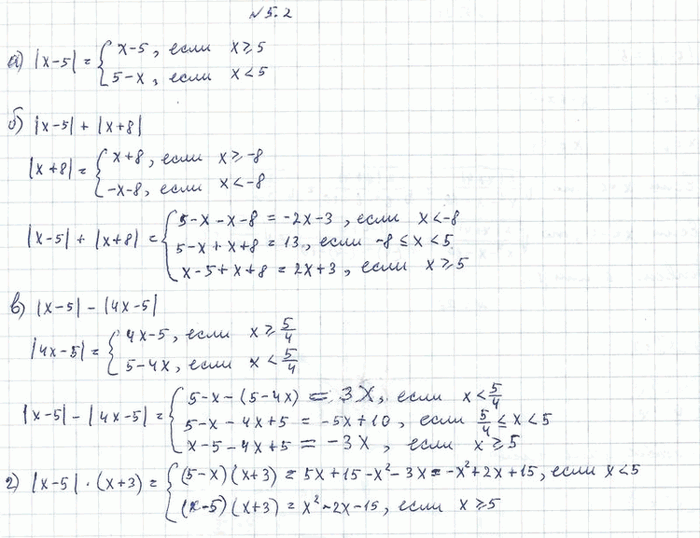 №5.2
а) |x-5| = { x-5, если x ≥ 5
5-x, если x < 5
б) |x-5| + |x+8|
|x+8| = { x+8, если x ≥ -8
-x-8, если x < -8
|x-5| + |x+8| = { 5-x-x-8 = -2x-3, если x < -8
5-x+x+8 = 13, если -8 ≤ x < 5
x-5+x+8 = 2x+3, если x ≥ 5
в) |x-5| - |4x-5|
|4x-5| = { 4x-5, если x ≥ 5/4
5-4x, если x < 5/4
|x-5| - |4x-5| = { 5-x-(5-4x) = 3x, если x < 5/4
5-x-4x+5 = -5x+10, если 5/4 ≤ x < 5
x-5-4x+5 = -3x, если x ≥ 5
г) |x-5| · (x+3) = { (5-x)(x+3) = 5x+15-x²-3x = -x²+2x+15, если x < 5
(x-5)(x+3) = x²-2x-15, если x ≥ 5